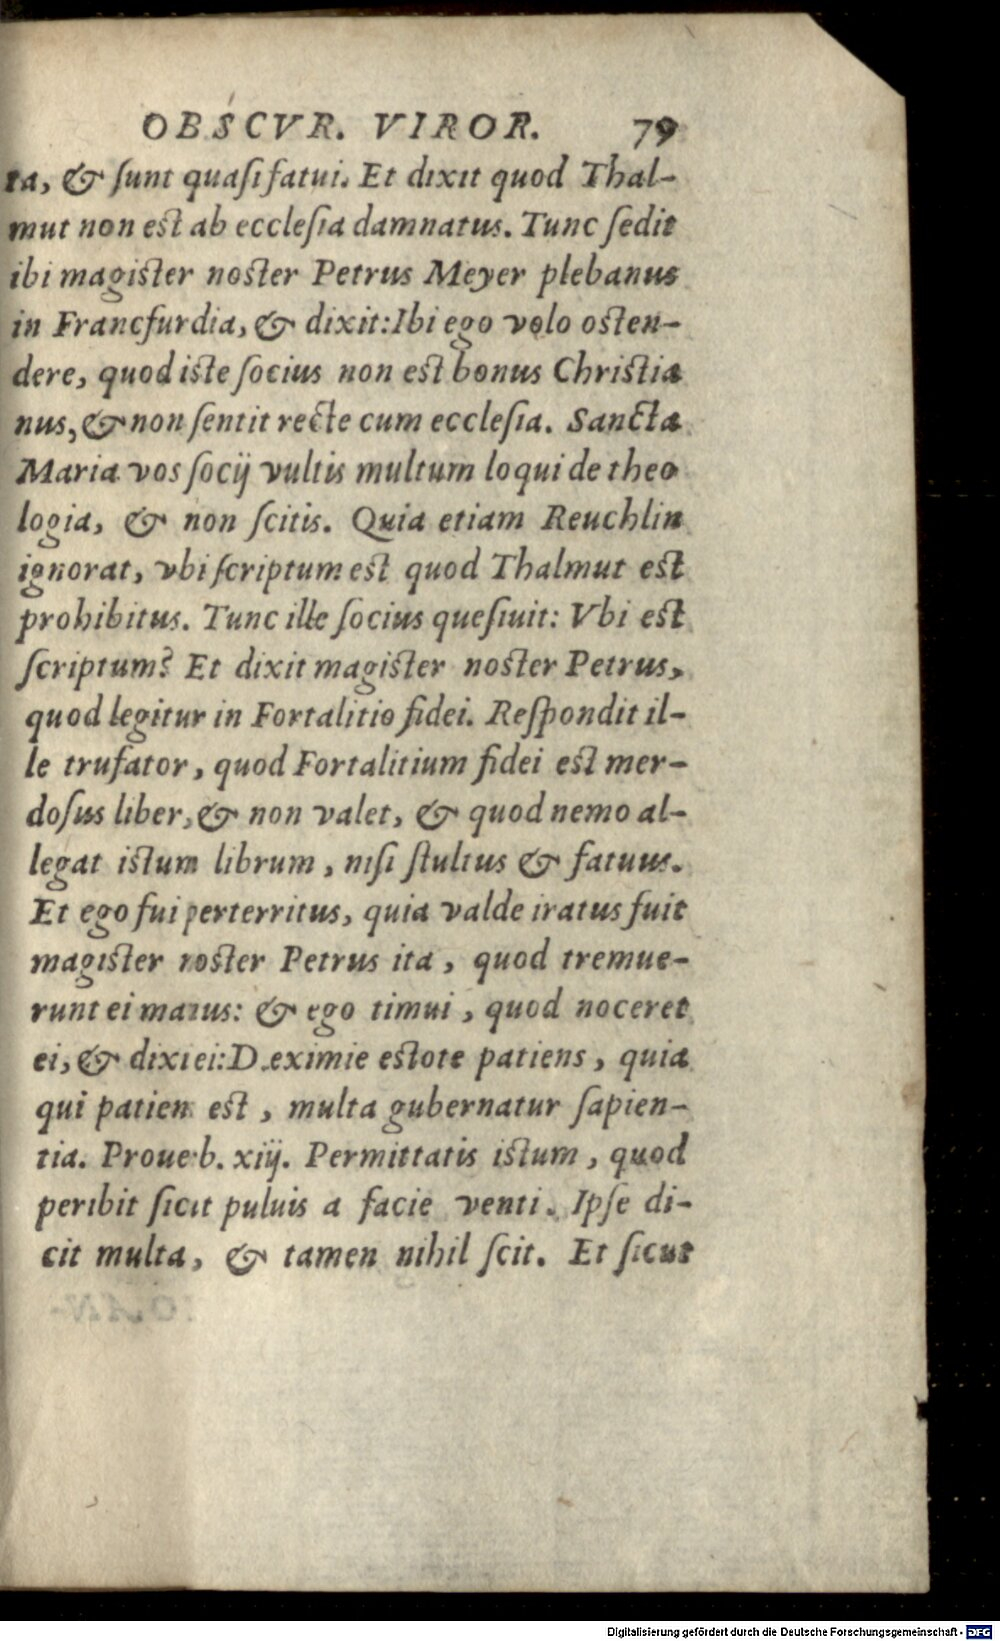 OBSCVR. VIROR. 79
ta, & ſunt quaſi fatui. Et dixit quod Thal-
mut non est ab eccleſia damnatus. Tunc ſedit
ibi magister noster Petrus Meyer plebanus
in Francfurdia, & dixit: Ibi ego volo osten-
dere, quod iste ſocius non est bonus Christia
nus, & non ſentit recte cum eccleſia. Sancta
Maria vos ſocij vultis multum loqui de theo
logia, & non ſcitis. Quia etiam Reuchlin
ignorat, vbi ſcriptum est quod Thalmut est
prohibitus. Tunc ille ſocius queſiuit: Vbi est
ſcriptum? Et dixit magister noster Petrus,
quod legitur in Fortalitio fidei. Reſpondit il-
le trufator, quod Fortalitium fidei est mer-
doſus liber, & non valet, & quod nemo al-
legat istum librum, niſi ſtultus & fatuus.
Et ego fui perterritus, quia valde iratus fuit
magister noster Petrus ita, quod tremue-
runt ei manus: & ego timui, quod noceret
ei, & dixi ei: D. eximie estote patiens, quia
qui patien est, multa gubernatur ſapien-
tia. Prouerb. xiij. Permittatis istum, quod
peribit ſicut puluis a facie venti. Ipſe di-
cit multa, & tamen nihil ſcit. Et ſicut
Digitalisierung gefördert durch die Deutsche Forschungsgemeinschaft - DFG